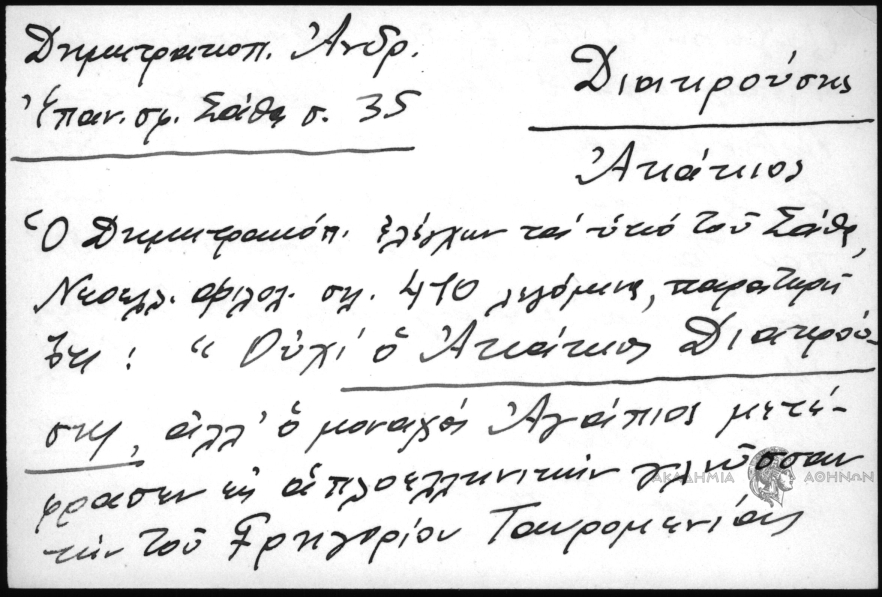 Δημητρακοπ. Ἀνδρ.
Ἐπαν. σφ. Σάθα σ. 35
Διακρούσης
Ἀκάκιος
Ὁ Δημητρακόπ. ἐλέγχων τὰ ὑπὸ τοῦ Σάθα,
Νεοελλ. φιλολ. σελ. 410 λεγόμενα, παρατηρεῖ
ὅτι: "Οὐχὶ ὁ Ἀκάκιος Διακρού-
σης, ἀλλ' ὁ μοναχὸς Ἀγάπιος μετέ-
φρασεν εἰς ἁπλοελληνικὴν γλῶσσαν
τὴν τοῦ Γρηγορίου Ταυρομενίας
ΑΚΑΔΗΜΙΑ ΑΘΗΝΩΝ